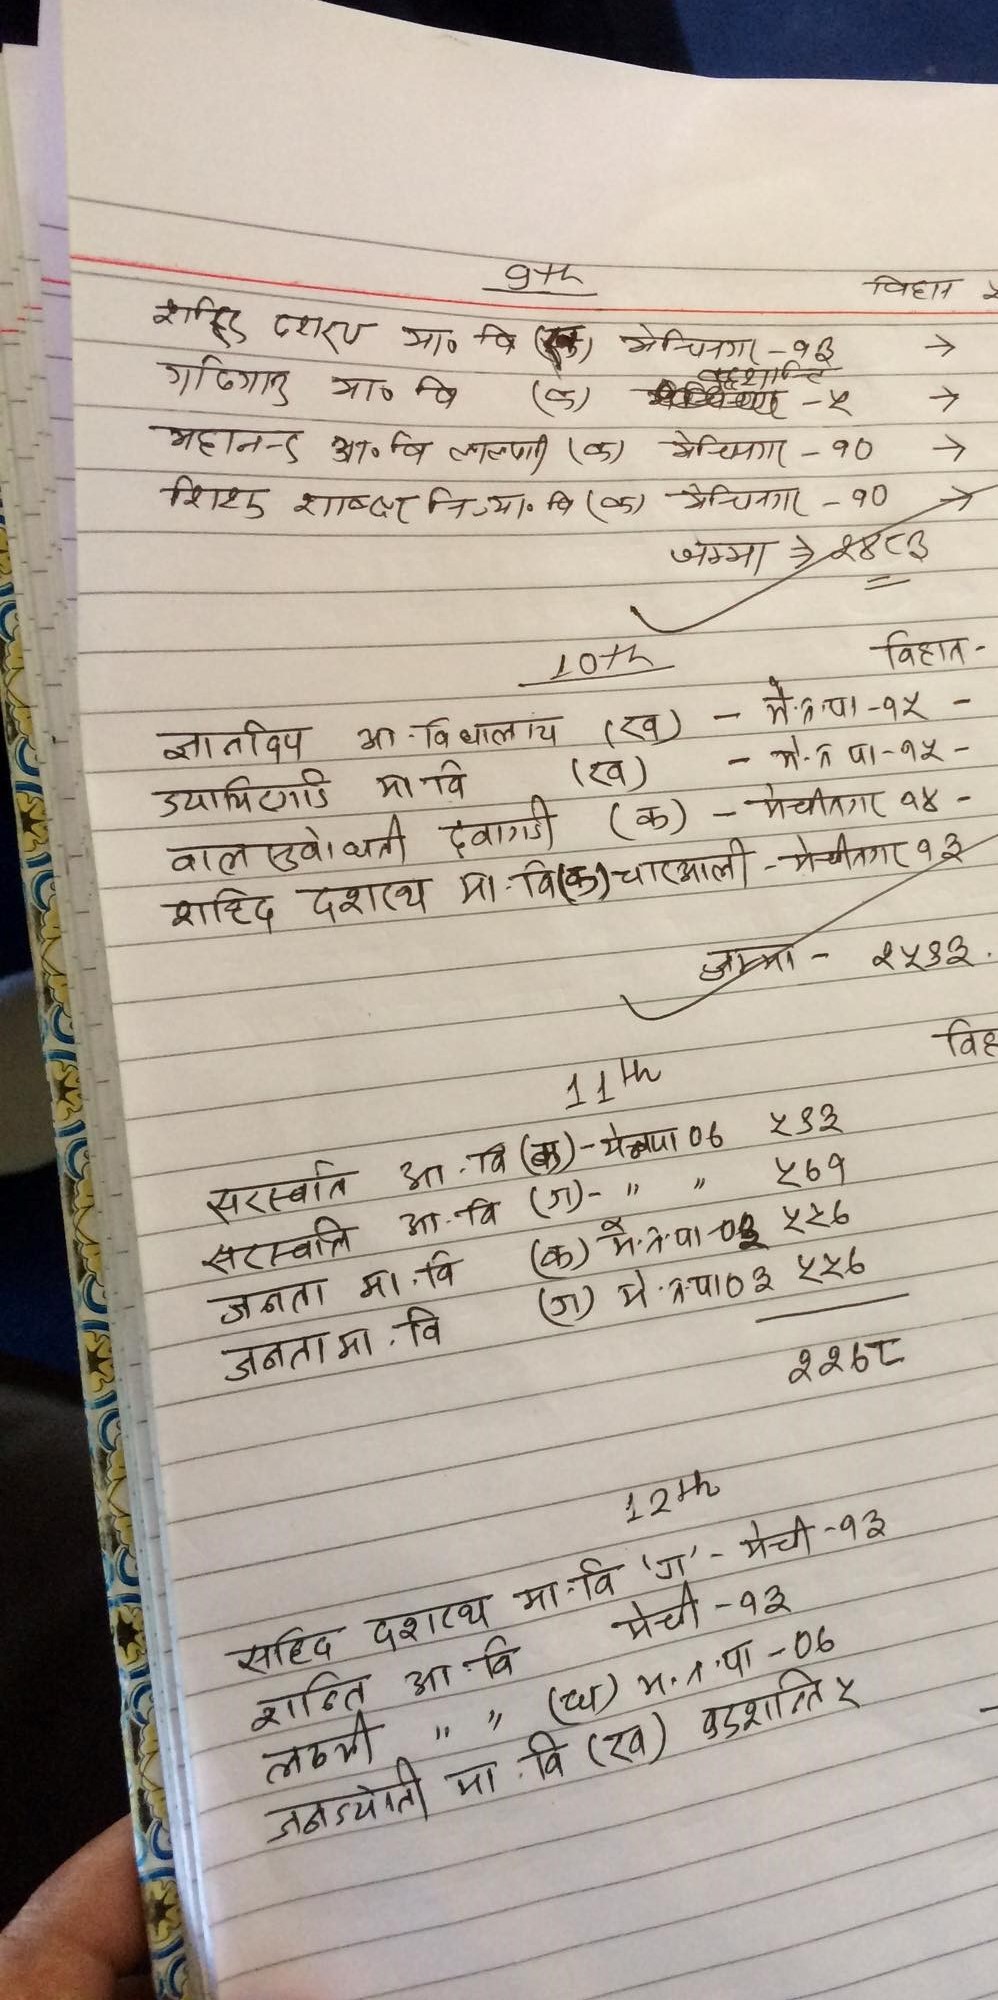 9th विहान
शहिद दशरथ मा० वि (ख) मेचिनगर - १३ →
गढिगाउ मा० वि (क) बुद्धशान्ति - ५ →
महानन्द आ० वि लालपानी (क) मेचिनगर - १० →
शिशु शाक्षर नि.मा. वि (क) मेचिनगर - १० →
जम्मा → २४८३
10th विहान -
ज्ञानदिप आ. विद्यालाय (ख) - मे. न. पा - १५ -
ज्यामिरगढि मा. वि (ख) - मे. न पा - १५ -
वाल सुवोधनी दुवागडी (क) - मेचीनगर १४ -
शहिद दशरथ मा. वि (क) चारआली - मेचीनगर १३
जम्मा - २५३२.
11th विह
सरस्वति आ. वि (क) - मेनपा ०७ ५९३
सरस्वति आ. वि (ग) - " " ५७१
जनता मा. वि (क) मे. न. पा - ०३ ५५७
जनता मा. वि (ग) मे. न. पा ०३ ५५७
२२७८
12th
सहिद दशरथ मा. वि 'ग' - मेची - १३
शान्ति आ. वि मेची - १३
लक्ष्मी " " (घ) म. न. पा - ०७
जनज्योती मा. वि (ख) वुडशान्ति ५